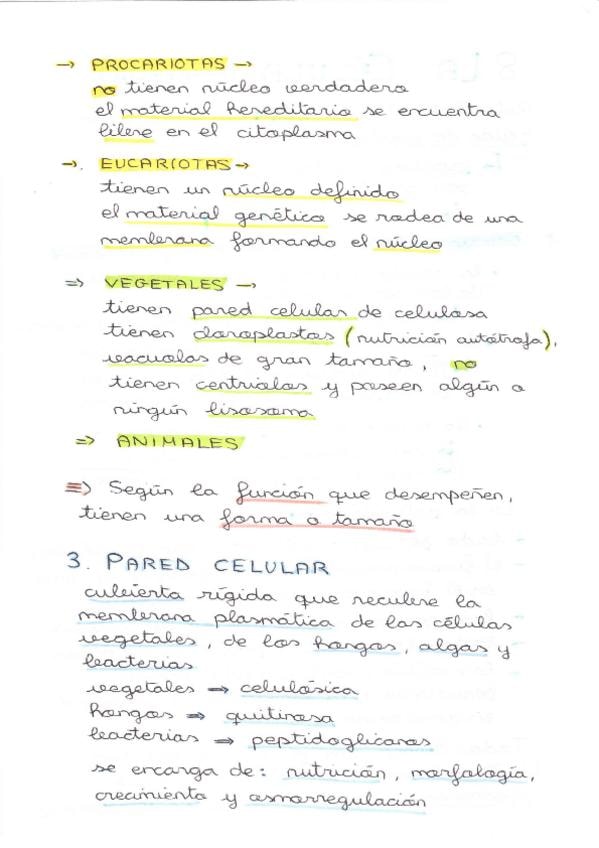 → PROCARIOTAS →
no tienen núcleo verdadero
el material hereditario se encuentra
libre en el citoplasma
→. EUCARIOTAS →
tienen un núcleo definido
el material genético se rodea de una
membrana formando el núcleo
⇒ VEGETALES →
tienen pared celular de celulosa
tienen cloroplastos (nutrición autótrofa),
vacuolas de gran tamaño, no
tienen centriolos y poseen algún o
ningún lisosoma
⇒ ANIMALES
≡) Según la función que desempeñen,
tienen una forma o tamaño
3. PARED CELULAR
cubierta rígida que recubre la
membrana plasmática de las células
vegetales, de los hongos, algas y
bacterias
vegetales ⇒ celulósica
hongos ⇒ quitinosa
bacterias ⇒ peptidoglicanos
se encarga de: nutrición, morfología,
crecimiento y osmorregulación